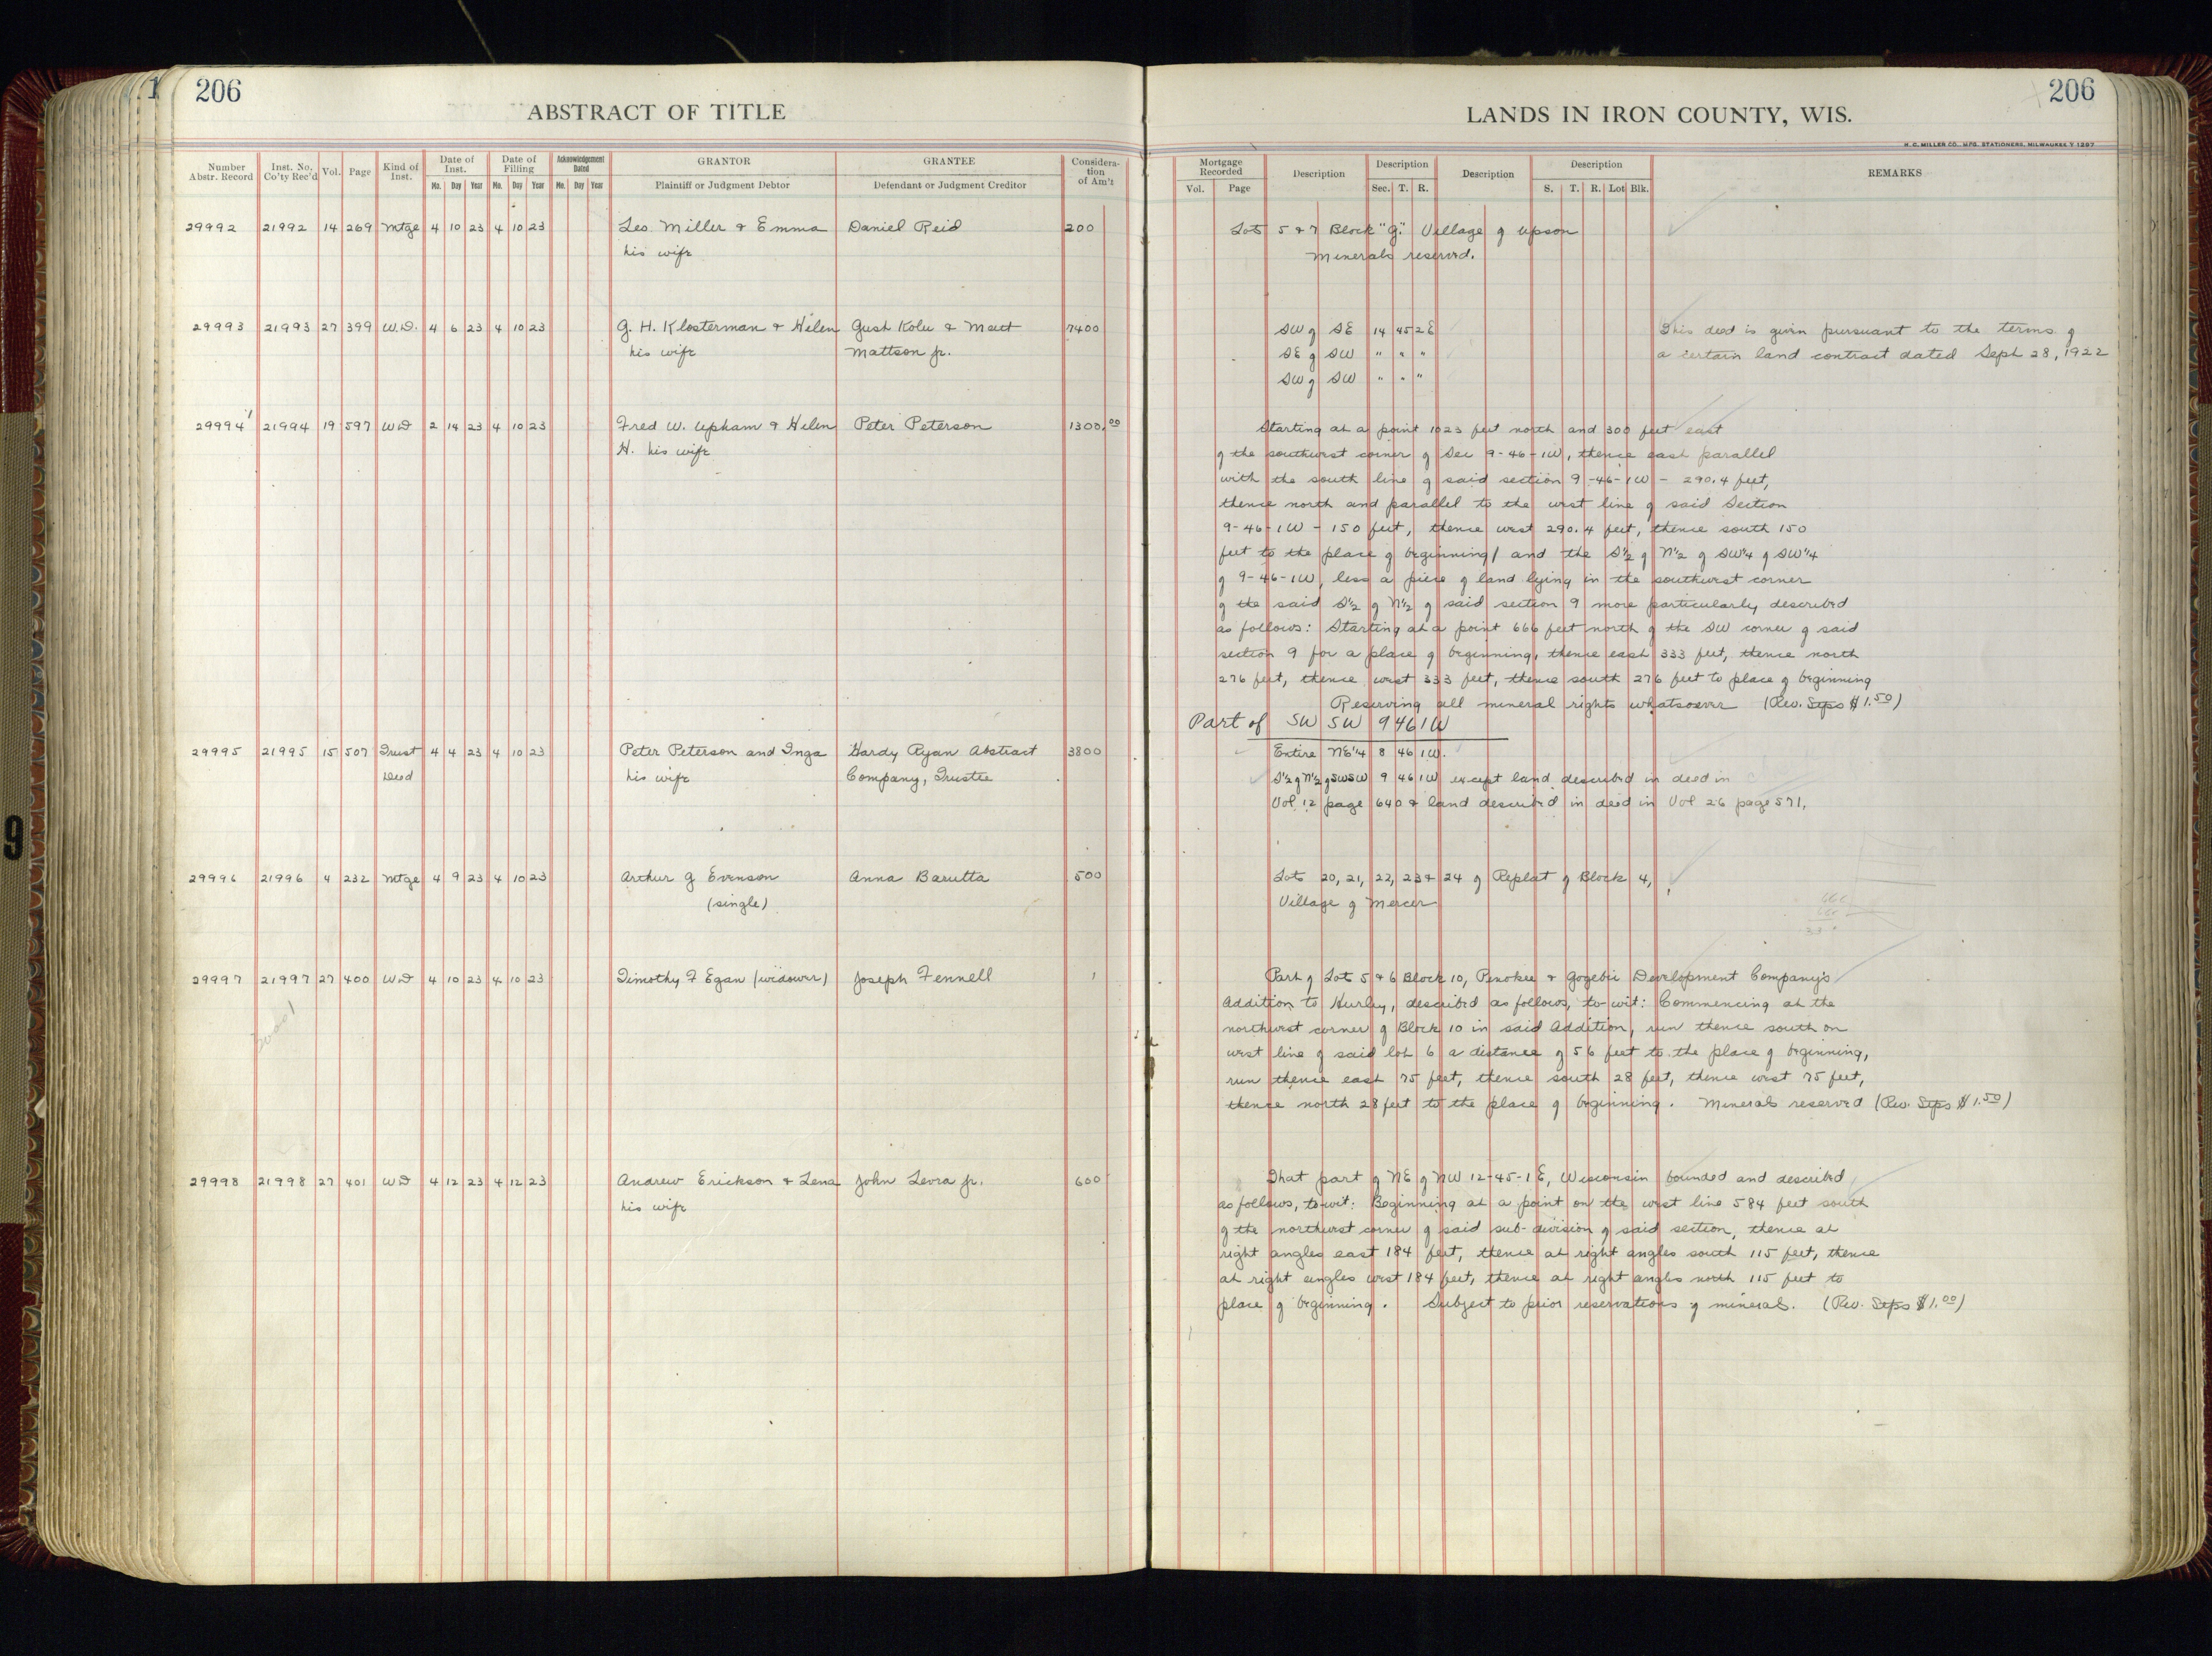 206
ABSTRACT OF TITLE
Number Abstr. Record
Inst. No. Co'ty Rec'd
Vol.
Page
Kind of Inst.
Date of Inst.
Mo. Day Year
Date of Filling
Mo. Day Year
Acknowledgement Dated
Mo. Day Year
GRANTOR
Plaintiff or Judgment Debtor
GRANTEE
Defendant or Judgment Creditor
Considera-
tion
of Am't
29992 21992 14 269 Mtge 4 10 23 4 10 23 Leo. Miller & Emma Daniel Reid 200
his wife
29993 21993 27 399 W.D. 4 6 23 4 10 23 G. H. Klosterman & Helen Gust Kolu & Matt 7400
his wife Mattson Jr.
29994 21994 19 597 WD 2 14 23 4 10 23 Fred W. Upham & Helen Peter Peterson 1300.00
H. his wife
29995 21995 15 507 Trust 4 4 23 4 10 23 Peter Peterson and Inga Hardy Ryan Abstract 3800
Deed his wife Company, Trustee
29996 21996 4 232 Mtge 4 9 23 4 10 23 Arthur J Evenson Anna Barutta 500
(single)
29997 21997 27 400 WD 4 10 23 4 10 23 Timothy F Egan (widower) Joseph Fennell 1
29998 21998 27 401 WD 4 12 23 4 12 23 Andrew Erickson & Lena John Levra Jr. 600
his wife
206
LANDS IN IRON COUNTY, WIS.
H. C. MILLER CO., MFG. STATIONERS, MILWAUKEE
Mortgage Recorded
Vol. Page
Description
Description
Sec. T. R.
Description
Description
S. T. R. Lot Blk.
REMARKS
Lots 5 & 7 Block "G" Village of Upson
Minerals reserved.
SW of SE 14 45 2E This deed is given pursuant to the terms of
SE of SW " " " a certain land contract dated Sept 28, 1922
SW of SW " " "
Starting at a point 1023 feet north and 300 feet east
of the southwest corner of Sec 9-46-1W, thence east parallel
with the south line of said section 9-46-1W - 290.4 feet,
thence north and parallel to the west line of said Section
9-46-1W - 150 feet, thence west 290.4 feet, thence south 150
feet to the place of beginning/ and the S1/2 of N1/2 of SW1/4 of SW1/4
of 9-46-1W, less a piece of land lying in the southwest corner
of the said S1/2 of N1/2 of said section 9 more particularly described
as follows: Starting at a point 666 feet north of the SW corner of said
section 9 for a place of beginning, thence east 333 feet, thence north
276 feet, thence west 333 feet, thence south 276 feet to place of beginning
Reserving all mineral rights whatsoever (Rev. Stps $1.50)
Part of SW SW 9 46 1W
Entire NE1/4 8 46 1W.
S1/2 of N1/2 of SWSW 9 46 1W except land described in deed in
Vol 12 page 640 & land described in deed in Vol 26 page 571,
Lots 20, 21, 22, 23 & 24 of Replat of Block 4,
Village of Mercer
Part of Lots 5 & 6 Block 10, Penokee & Gogebic Development Company's
Addition to Hurley, described as follows, to-wit: Commencing at the
northwest corner of Block 10 in said Addition, run thence south on
west line of said lot 6 a distance of 56 feet to the place of beginning,
run thence east 75 feet, thence south 28 feet, thence west 75 feet,
thence north 28 feet to the place of beginning. Minerals reserved (Rev. Stps $1.50)
That part of NE of NW 12-45-1E, Wisconsin bounded and described
as follows, to-wit: Beginning at a point on the west line 584 feet south
of the northwest corner of said sub-division of said section, thence at
right angles east 184 feet, thence at right angles south 115 feet, thence
at right angles west 184 feet, thence at right angles north 115 feet to
place of beginning. Subject to prior reservations of minerals. (Rev. Stps $1.00)
9